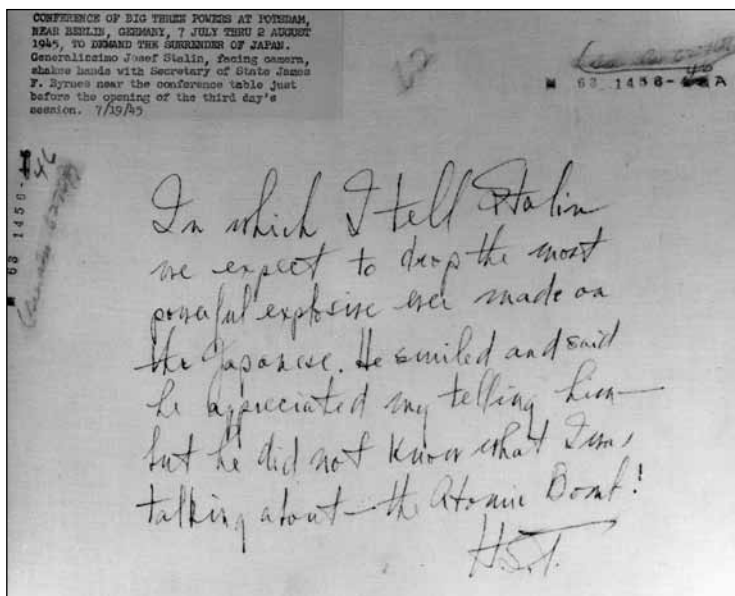 CONFERENCE OF BIG THREE POWERS AT POTSDAM,
NEAR BERLIN, GERMANY, 7 JULY THRU 2 AUGUST
1945, TO DEMAND THE SURRENDER OF JAPAN.
Generalissimo Josef Stalin, facing camera,
shakes hands with Secretary of State James
F. Byrnes near the conference table just
before the opening of the third day's
session. 7/19/45
63 1456-
46 A
63 1456-
46
In which I tell Stalin
we expect to drop the most
powerful explosive ever made on
the Japanese. He smiled and said
he appreciated my telling him—
but he did not know what I was
talking about—the Atomic Bomb!
H.S.T.